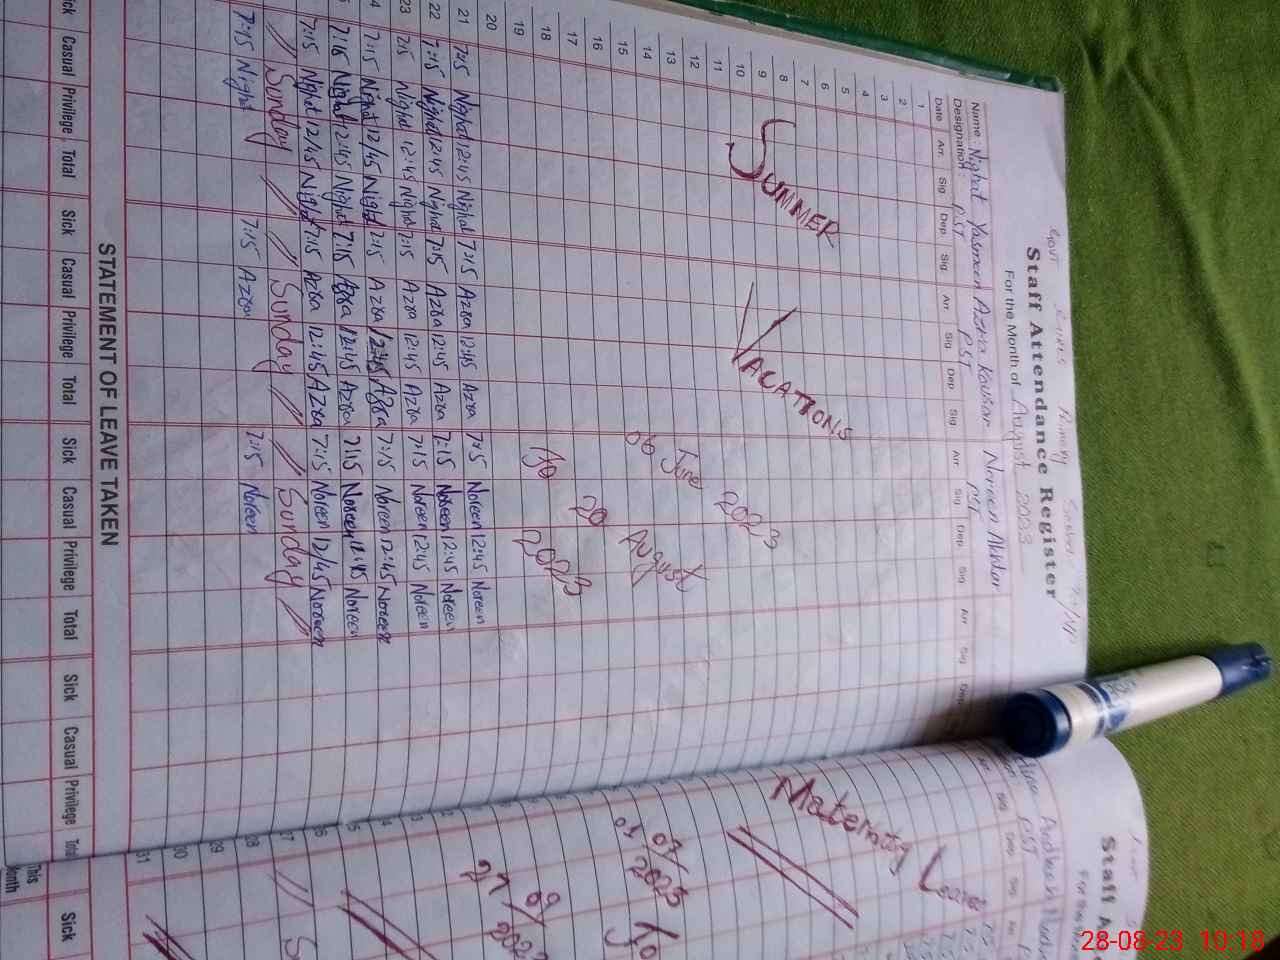 Staff Attendance Register
For the Month of August 2023
Name: Nighat Yasmeen Azra Kousar Noreen Akhtar
Designation: PST PST PST
Date Arr. Sig Dep. Sig. Arr. Sig Dep. Sig. Arr. Sig Dep. Sig. Arr. Sig. Dep.
1
2
3
4
5
6
7
8
9
10
11
12
13
14
15
16
17
18
19
20
SUMMER VACATIONS
06 June 2023
To 20 August
2023
21 7:15 Nighat 12:45 Nighat 7:15 Azra 12:45 Azra 7:15 Noreen 12:45 Noreen
22 7:15 Nighat 12:45 Nighat 7:15 Azra 12:45 Azra 7:15 Noreen 12:45 Noreen
23 7:15 Nighat 12:45 Nighat 7:15 Azra 12:45 Azra 7:15 Noreen 12:45 Noreen
4 7:15 Nighat 12:45 Nighat 7:15 Azra 12:45 Azra 7:15 Noreen 12:45 Noreen
5 7:15 Nighat 12:45 Nighat 7:15 Azra 12:45 Azra 7:15 Noreen 12:45 Noreen
7:15 Nighat 12:45 Nighat 7:15 Azra 12:45 Azra 7:15 Noreen 12:45 Noreen
// Sunday // // Sunday // // Sunday //
7:15 Nighat 7:15 Azra 7:15 Noreen
STATEMENT OF LEAVE TAKEN
Sick Casual Privilege Total Sick Casual Privilege Total Sick Casual Privilege Total Sick Casual Privilege Total
Staff A
For the
PST
Sig Dep. Sig
Maternity Leave
01 07/2023 To
27 09
26
27
28
29
30
31
This Month
Sick
28-08-23 10:18